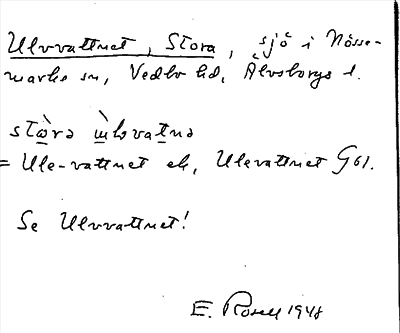 Ulvvattnet, Stora, sjö i Nösse-
marks sn, Vedbo hd, Älvsborgs l.
stòrə ùlvatnə
= Ule-vattnet ek, Ulevattnet G61.
Se Ulvvattnet!
E. Rosell 1948